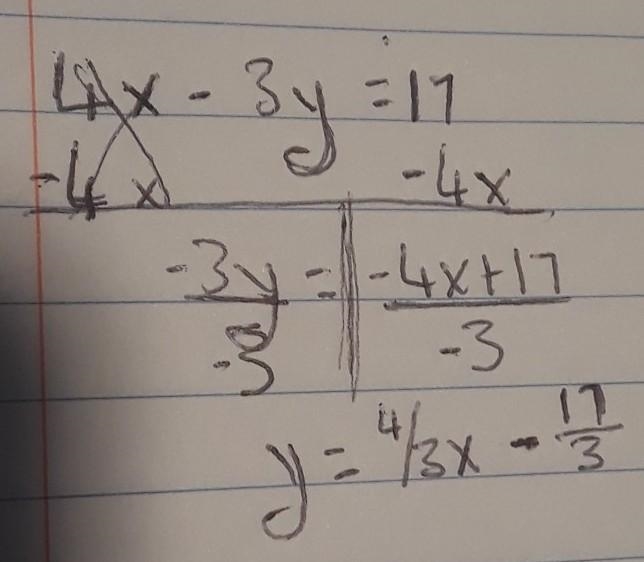 4x - 3y = 17
-4x -4x
-3y = -4x+17
-3 -3
y = 4/3x - 17/3